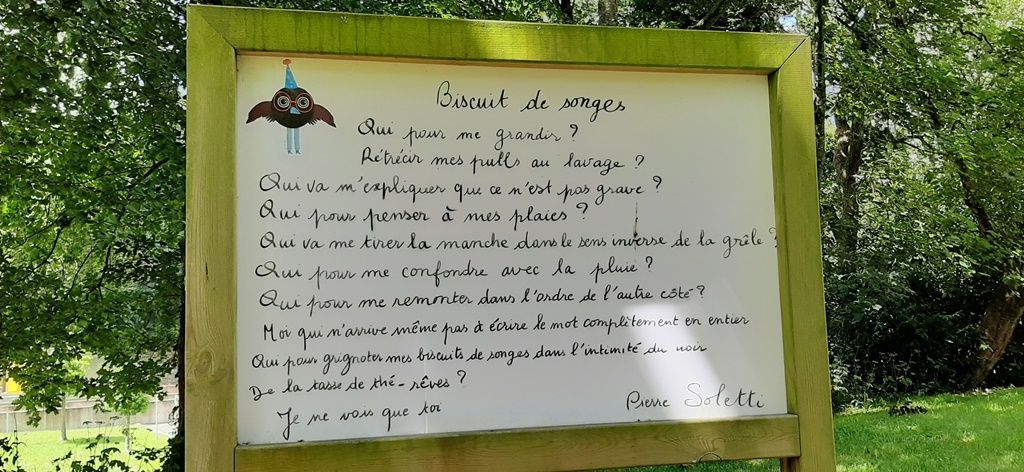 Biscuit de songes
Qui pour me grandir ?
Rétrécir mes pulls au lavage ?
Qui va m'expliquer que ce n'est pas grave ?
Qui pour penser à mes plaies ?
Qui va me tirer la manche dans le sens inverse de la grêle ?
Qui pour me confondre avec la pluie ?
Qui pour me remonter dans l'ordre de l'autre côté ?
Moi qui n'arrive même pas à écrire le mot complètement en entier
Qui pour grignoter mes biscuits de songes dans l'intimité du noir
De la tasse de thé-rêves ?
Je ne vois que toi
Pierre Soletti